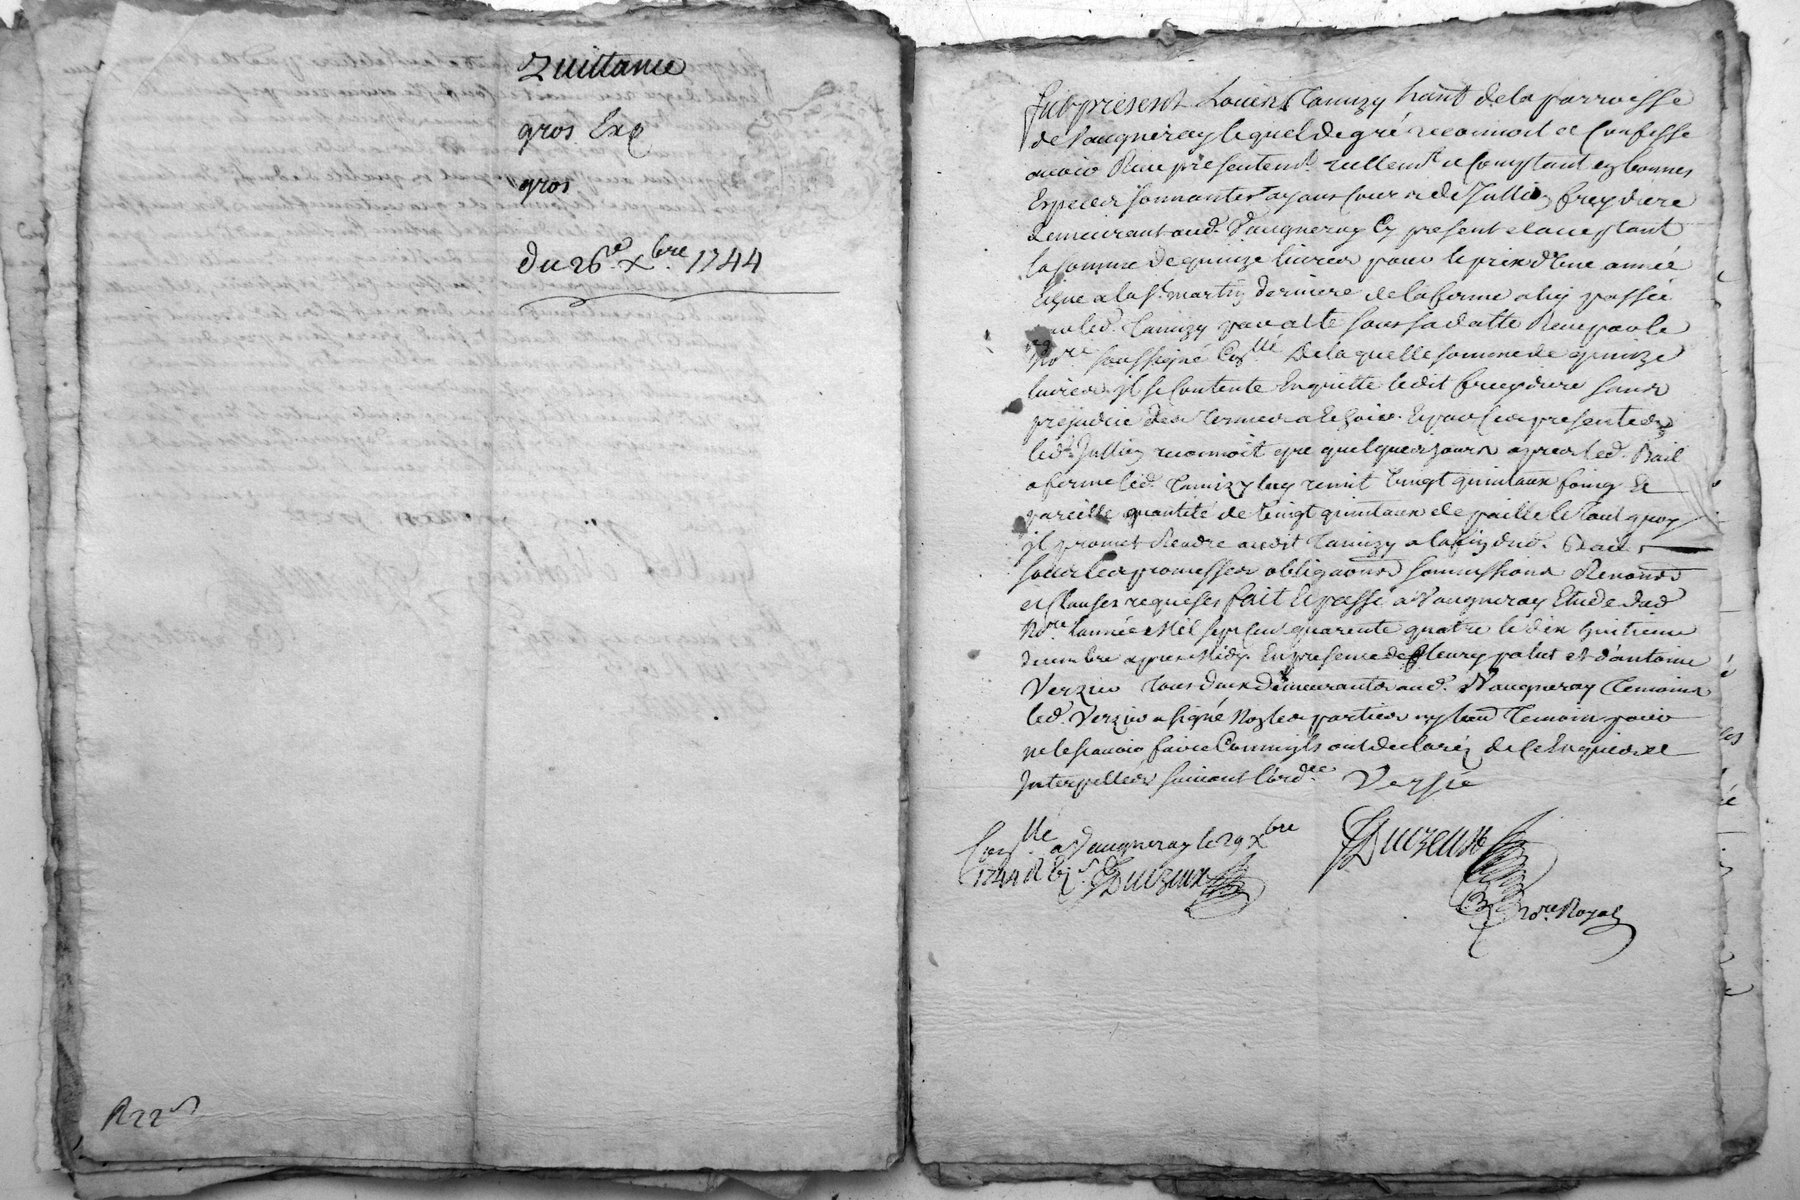 Quittance
gros Exp
gros
du 26e xbre 1744
R 22 s
fut present Louis Tamizy hant de la parroisse
de Vaugneray lequel de gré reconnoit et Confesse
avoir Receu presentemt reellemt et Comptant en bonnes
Especes sonnantes ayans Cours de Jullien freydiere
demeurant aud. Vaugneray Cy present et acceptant
la somme de quinze livres pour le prix d'une année
Echue a la St martin derniere de la ferme a luy passée
par led. Tamizy par acte sous sa datte Receu par le
Nore soussigné Conllé De laquelle somme de quinze
livres il se Contente En quitte ledit freydiere sans
prejudice des termes a Echoir. Et par Ces presentes
led. Jullien reconnoit que quelques jours apres led. Bail
a ferme led. Tamizy luy remit Vingt quintaux foing Et
pareille quantité de Vingt quintaux de paille le tout quoy
il promet Rendre audit Tamizy a la fin dud. Bail
sous les promesses obligaons soumissions Renons
et Clauses requises fait Et passé a Vaugneray Etude dud
Nore l'année Mil sept Cent quarente quatre le dix huitieme
decembre apres Midy En presence de fleury palut et d'antoine
Verzieu tous deux demeurants aud. Vaugneray temoins
led. Verzieu a signé Non les parties ny laud temoin pour
ne le scavoir faire Comm'ils ont declaréz de Ce Enquis et
Interpellés suivant l'ordce Versie
Conllé a Vaugneray le 29 xbre
1744 R
Nore Royal